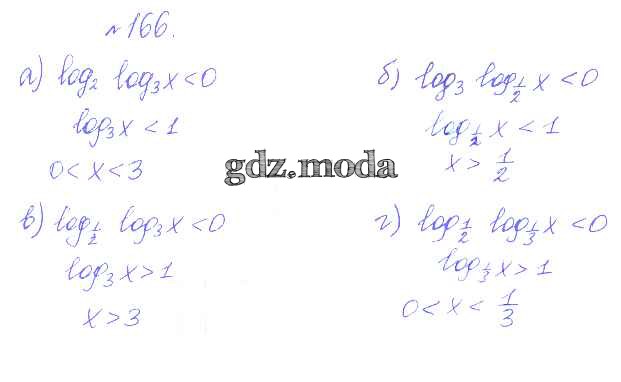 №166.
а) log₂ log₃x < 0
log₃x < 1
0 < x < 3
б) log₃ log_{1/2} x < 0
log_{1/2} x < 1
x > 1/2
gdz.moda
в) log_{1/2} log₃x < 0
log₃x > 1
x > 3
г) log_{1/2} log_{1/3}x < 0
log_{1/3}x > 1
0 < x < 1/3